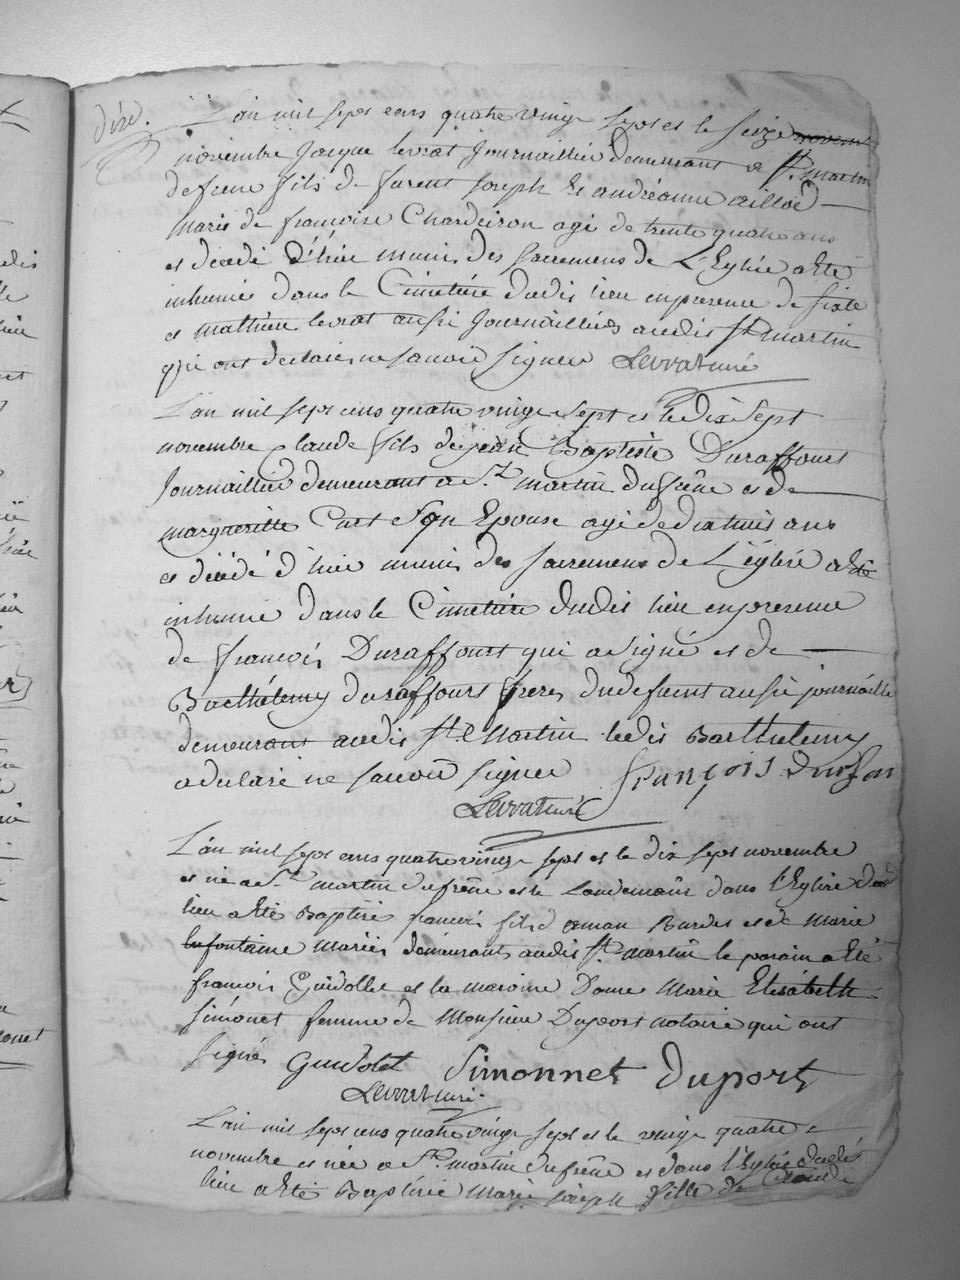 L'an mil sept cens quatre vingt sept et le seize novem
novembre Jacque levrat Journaillier demeurant a St martin
defrene fils de furent Joseph et andréanne
marie de francoise Chardeiron agé de trente quatre ans
et décédé d'hiér munis des sacremens de L'Eglise a Eté
inhumé dans le Cimetière dudit lieu en presence de
et mathieu levrat aussi Journailliers audit St martin
qui ont declaré ne savoir signer Levrat curé
L'an mil sept cens quatre vingt sept et le dix Sept
novembre Claude fils de jean Baptiste Duraffourt
Journaillier demeurant a St martin dufrêne et de
margueritte Curt Son Epouse agé de dix huit ans
et décédé d'hiér munis des sacremens de L'église a Eté
inhumé dans le Cimetière dudit lieu en presence
de francois Duraffourt qui a Signé et de
Barthélemy duraffourt frères du defunt aussi journaillié
demeurant audit St Martin ledit Barthelemy
a declaré ne savoir signer françois durafou
Levrat curé
L'an mil sept cens quatre vingt sept et le dix sept novembre
et né a St martin dufrêne et le Landemain dans l'Eglise dud
lieu a Eté Baptisé francois fils d'aman Burdet et de Marie
lafontaine Mariés demeurants audit St martin le parain a Eté
francois Guidollet et la maroine Dame Marie Elisabeth
simonet femme de Monsieur Duport notaire qui ont
signés Guidolet Simonnet duport
Levrat curé
L'an mil sept cens quatre vingt sept et le vingt quatre
novembre et née a St martin dufrêne et dans l'Eglise dudit
lieu a Eté Baptisée Marie Joseph fille de Claude